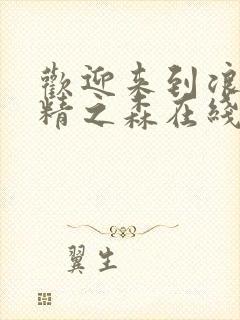 歡迎来到浪
精之森在綫
翼生